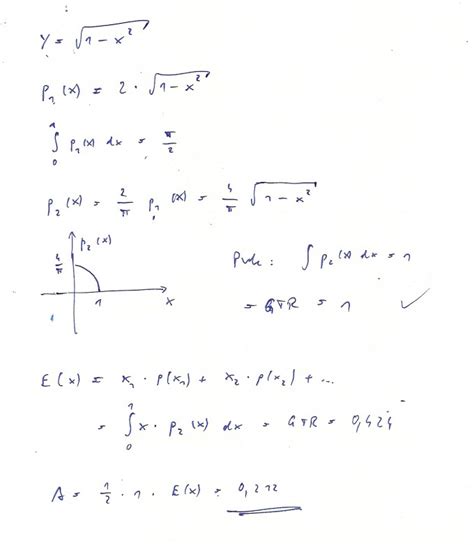 Y = √(1 - x²)
p₁(x) = 2 · √(1 - x²)
∫₀¹ p₁(x) dx = π/2
p₂(x) = 2/π p₁(x) = 4/π √(1 - x²)
p₂(x)
4/π
1
x
Probe: ∫ p₂(x) dx = 1
= GTR = 1 ✓
E(x) = x₁ · p(x₁) + x₂ · p(x₂) + ...
= ∫₀¹ x · p₂(x) dx = GTR = 0,424
A = 1/2 · 1 · E(x) = 0,212